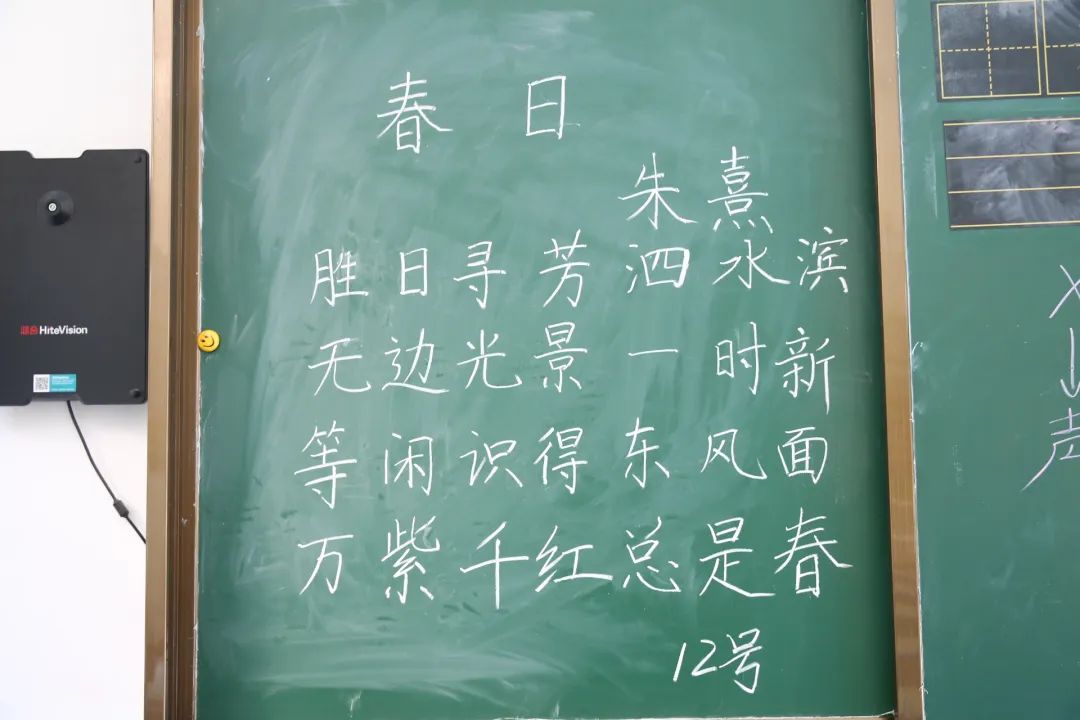 春日
朱熹
胜日寻芳泗水滨
无边光景一时新
等闲识得东风面
万紫千红总是春
12号
HiteVision